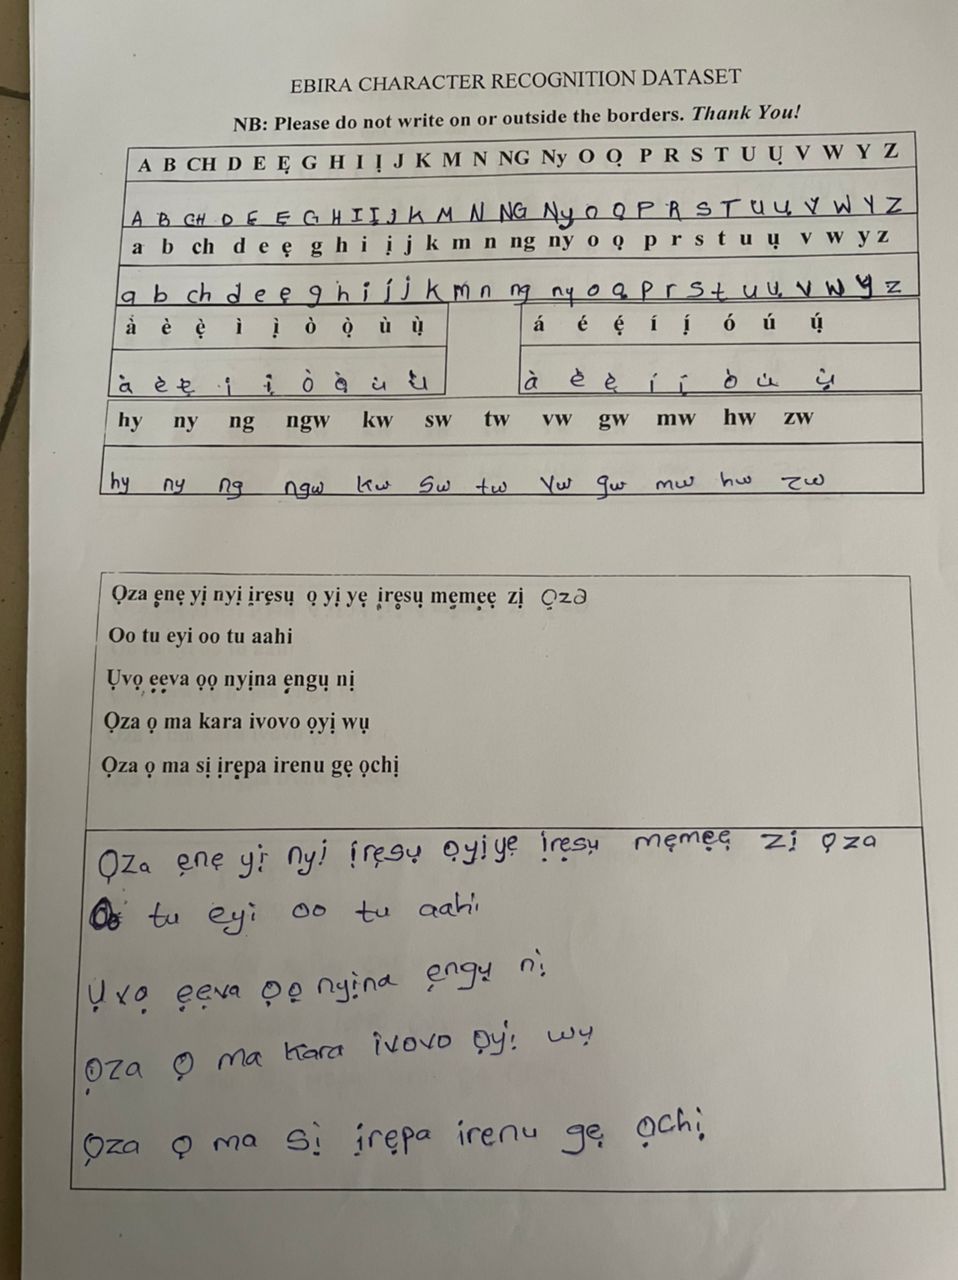 EBIRA CHARACTER RECOGNITION DATASET
NB: Please do not write on or outside the borders. Thank You!
A B CH D E Ẹ G H I Ị J K M N NG Ny O Ọ P R S T U Ụ V W Y Z
A B CH D E Ẹ G H I Ị J K M N NG Ny O Ọ P R S T U Ụ V W Y Z
a b ch d e ẹ g h i ị j k m n ng ny o ọ p r s t u ụ v w y z
a b ch d e ẹ g h i í j k m n ng ny o ọ p r s t u ụ v w y z
à è ẹ̀ ì ị̀ ò ọ̀ ù ụ̀ á é ẹ́ í ị́ ó ú ụ́
à è ẹ̀ ì ị̀ ò ọ̀ ù ụ̀ à è ẹ̀ í ị́ ò ù ụ̀
hy ny ng ngw kw sw tw vw gw mw hw zw
hy ny ng ngw kw sw tw vw gw mw hw zw
Ọza ẹnẹ yị nyị ịrẹsụ ọ yị yẹ ịrẹsụ mẹmẹẹ zị Ọza
Oo tu eyi oo tu aahi
Ụvọ ẹẹva ọọ nyịna ẹngụ nị
Ọza ọ ma kara ivovo ọyị wụ
Ọza ọ ma sị ịrẹpa irenu gẹ ọchị
Ọza ẹnẹ yị nyị ịrẹsụ ọyịyẹ ịrẹsụ mẹmẹẹ zị ọza
Oo tu eyi oo tu aahi
Ụvọ ẹẹva ọọ nyịna ẹngụ nị
Ọza Ọ ma kara ivovo ọyị wụ
Ọza ọ ma sị ịrẹpa irenu gẹ ọchị